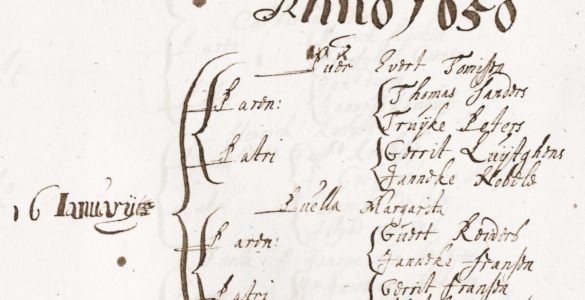 Anno 1650
Puer Evert Tomissen
Paren: Thomas Sanders
Truÿke Peters
Patri Gerrit
Janneke
16 Ianuarÿ
Puella Margarita
Paren: Evert Reiders
Janneke Fransen
Patri Gerrit Fransen